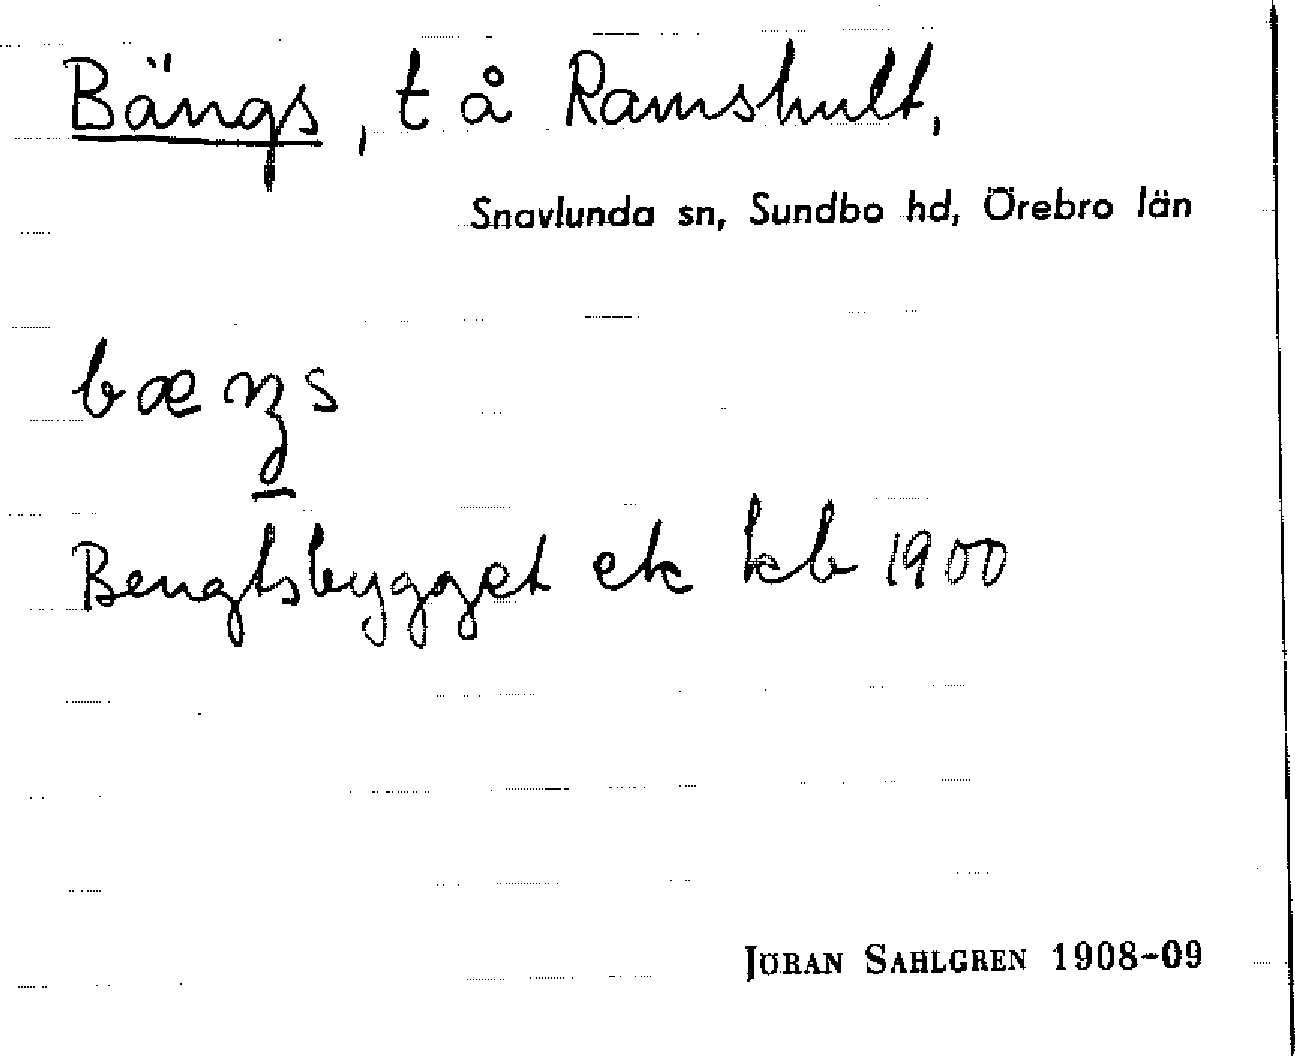 Bängs, t å Ramshult,
Snavlunda sn, Sundbo hd, Örebro län
bæŋs
Bengtsbygget ek kb 1900
JÖRAN SAHLGREN 1908-09